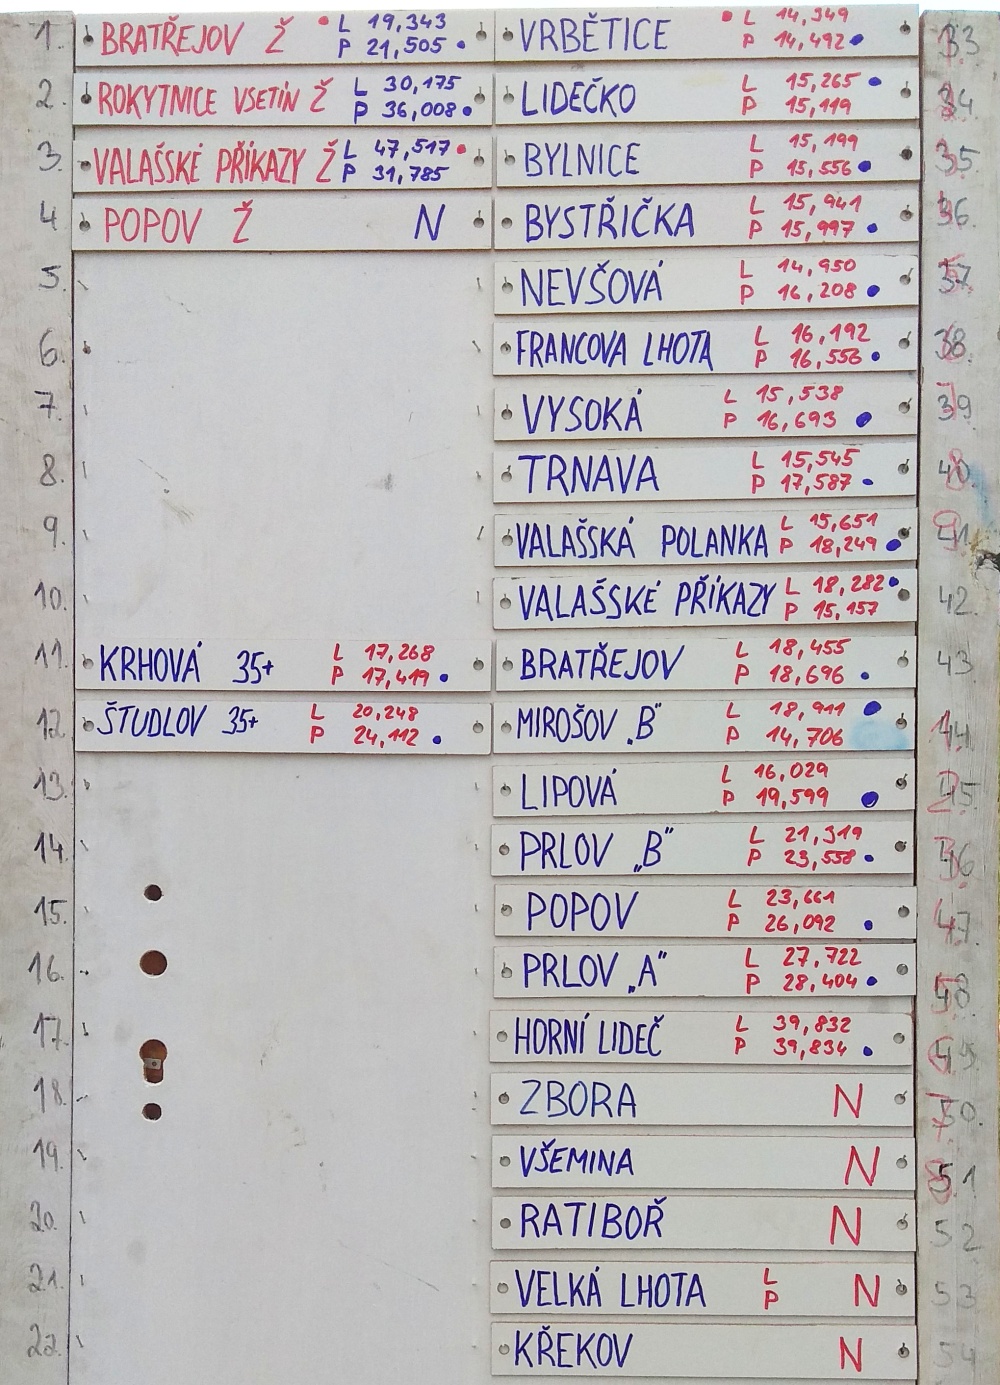 1. BRATŘEJOV Ž L 19,343
P 21,505
2. ROKYTNICE VSETÍN Ž L 30,175
P 36,008
3. VALAŠSKÉ PŘÍKAZY Ž L 47,517
P 31,785
4. POPOV Ž N
5.
6.
7.
8.
9.
10.
11. KRHOVÁ 35+ L 17,268
P 17,419
12. ŠTUDLOV 35+ L 20,248
P 24,112
13.
14.
15.
16.
17.
18.
19.
20.
21.
22.
VRBĚTICE L 14,349 33
P 14,492
LIDEČKO L 15,265 34
P 15,119
BYLNICE L 15,199 35
P 15,556
BYSTŘIČKA L 15,941 36
P 15,997
NEVŠOVÁ L 14,950 37
P 16,208
FRANCOVA LHOTA L 16,192 38.
P 16,556
VYSOKÁ L 15,538 39
P 16,693
TRNAVA L 15,545 40.
P 17,587
VALAŠSKÁ POLANKA L 15,651 41.
P 18,249
VALAŠSKÉ PŘÍKAZY L 18,282 42.
P 15,157
BRATŘEJOV L 18,455 43
P 18,696
MIROŠOV „B" L 18,911 44.
P 14,706
LIPOVÁ L 16,029 45.
P 19,599
PRLOV „B" L 21,319 46
P 23,558
POPOV L 23,661 47.
P 26,092
PRLOV „A" L 27,722 48
P 28,404
HORNÍ LIDEČ L 39,832 49
P 39,834
ZBORA N 50.
VŠEMINA N 51
RATIBOŘ N 52
VELKÁ LHOTA L N 53
P
KŘEKOV N 54